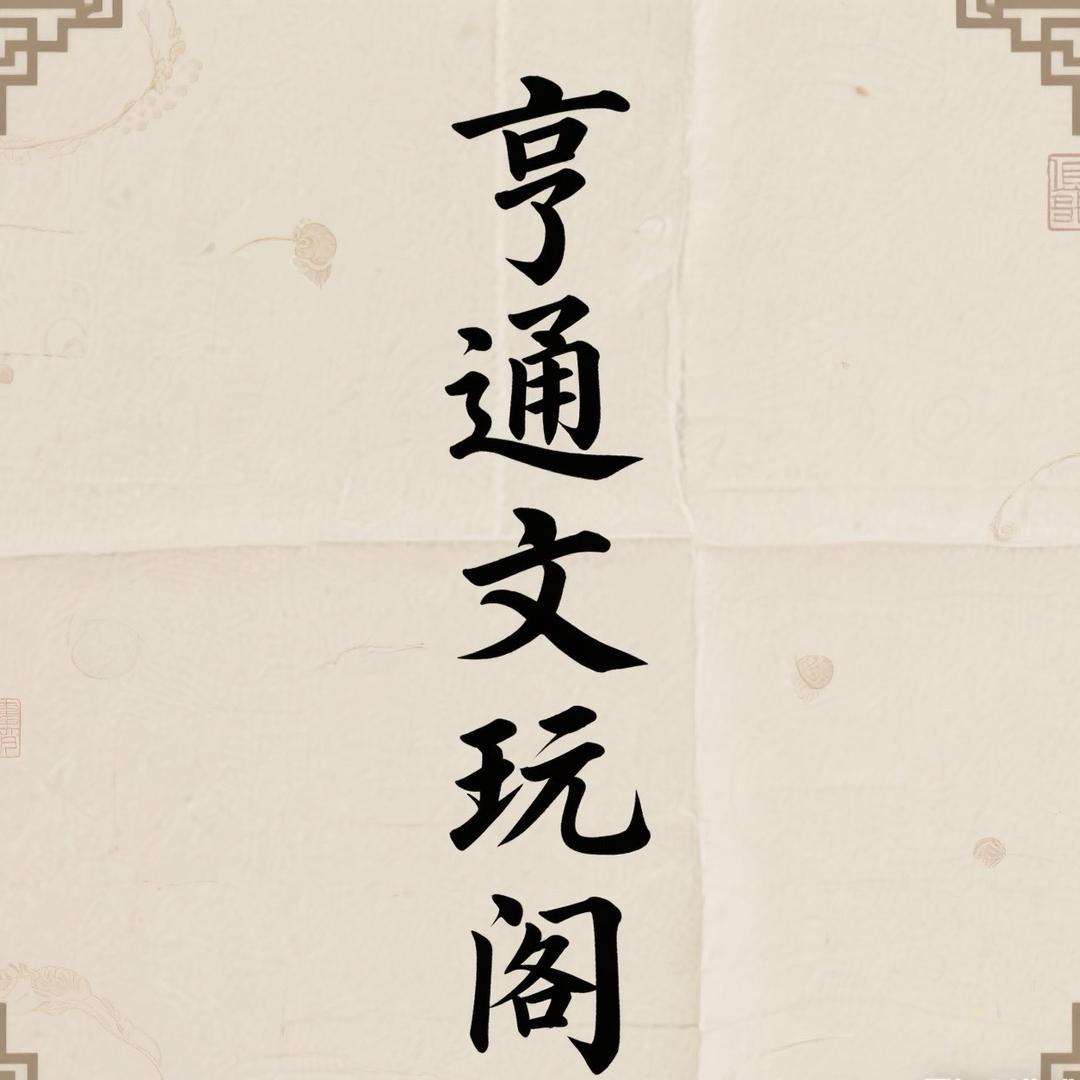 亨通文玩阁